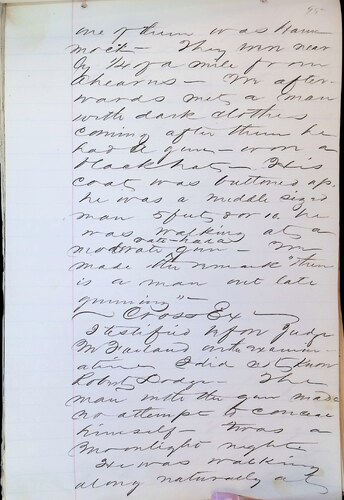 95
one of them was Ham
mock — They were near
ly 1/4 of a mile from
Ahearns — We after-
wards met a man
with dark clothes
coming after them he
had a gun — wore a
black hat — His
coat was buttoned up.
he was a middle sized
man 5 feet 8 or 10. he
was walking at a
moderate rate - had a gun — We
made the remark "there
is a man out late
gunning" —
Cross Ex
I testified before Judge
McFarland on the examin-
ation. I did not know
Robert Dodge. The
man with the gun made
no attempt to conceal
himself — Was a
moonlight night
He was walking
along naturally at